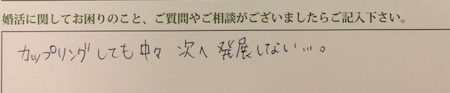 婚活に関してお困りのこと、ご質問やご相談がございましたらご記入下さい。
カップリングしても中々 次へ 発展しない…。